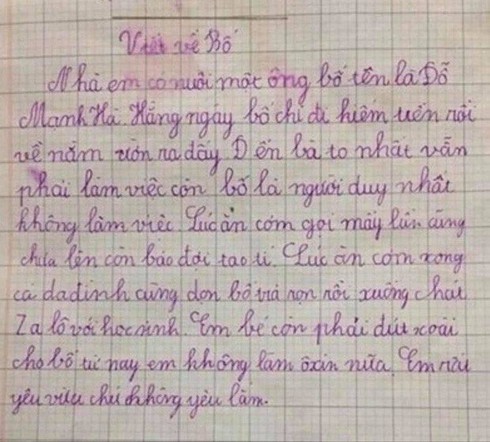 Viết về Bố
Nhà em có nuôi một ông bố tên là Đỗ
Mạnh Hà. Hằng ngày bố chỉ đi kiếm tiền rồi
về nằm ườn ra đấy. Đến bà to nhất vẫn
phải làm việc còn bố là người duy nhất
không làm việc. Lúc ăn cơm gọi mấy lần cũng
chưa lên còn bảo đợi tao tí. Lúc ăn cơm xong
cả da đình cùng dọn bố trả nọn rồi xuống chát
Za lô với học sinh. Em bé còn phải đút xoài
cho bố từ nay em không làm ôxin nữa. Em rữa
yêu vừa chứ không yêu lắm.